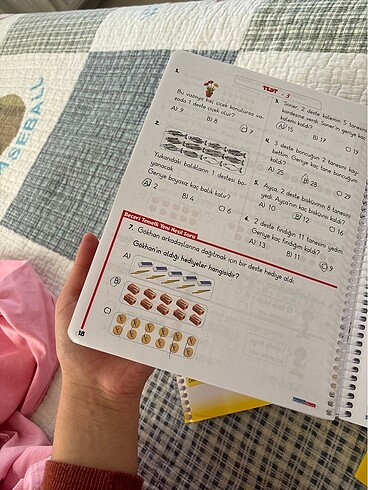 TEST - 3
1.
Bu vazoya kaç çiçek konulursa vazoda 1 deste çiçek olur?
A) 9
B) 8
C) 7
2.
Yukarıdaki balıkların 1 destesi boyanacak.
Geriye boyasız kaç balık kalır?
A) 2
B) 4
C) 6
3. Soner, 2 deste kalemin 5 tanesini
kardeşine verdi. Soner'in geriye kaç
kalemi kaldı?
A) 15
B) 17
C) 19
4. 3 deste boncuğun 2 tanesini kaybettim. Geriye kaç tane boncuğum
kaldı?
A) 25
B) 28
C) 29
5. Ayça, 2 deste bisküvinin 8 tanesini
yedi. Ayça'nın kaç bisküvisi kaldı?
A) 10
B) 12
C) 16
6. 2 deste fındığın 11 tanesini yedim.
Geriye kaç fındığım kaldı?
A) 13
B) 11
C) 9
Beceri Temelli Yeni Nesil Soru
7. Gökhan arkadaşlarına dağıtmak için bir deste hediye aldı.
Gökhan'ın aldığı hediyeler hangisidir?
A)
B)
C)
18
BASEBALL